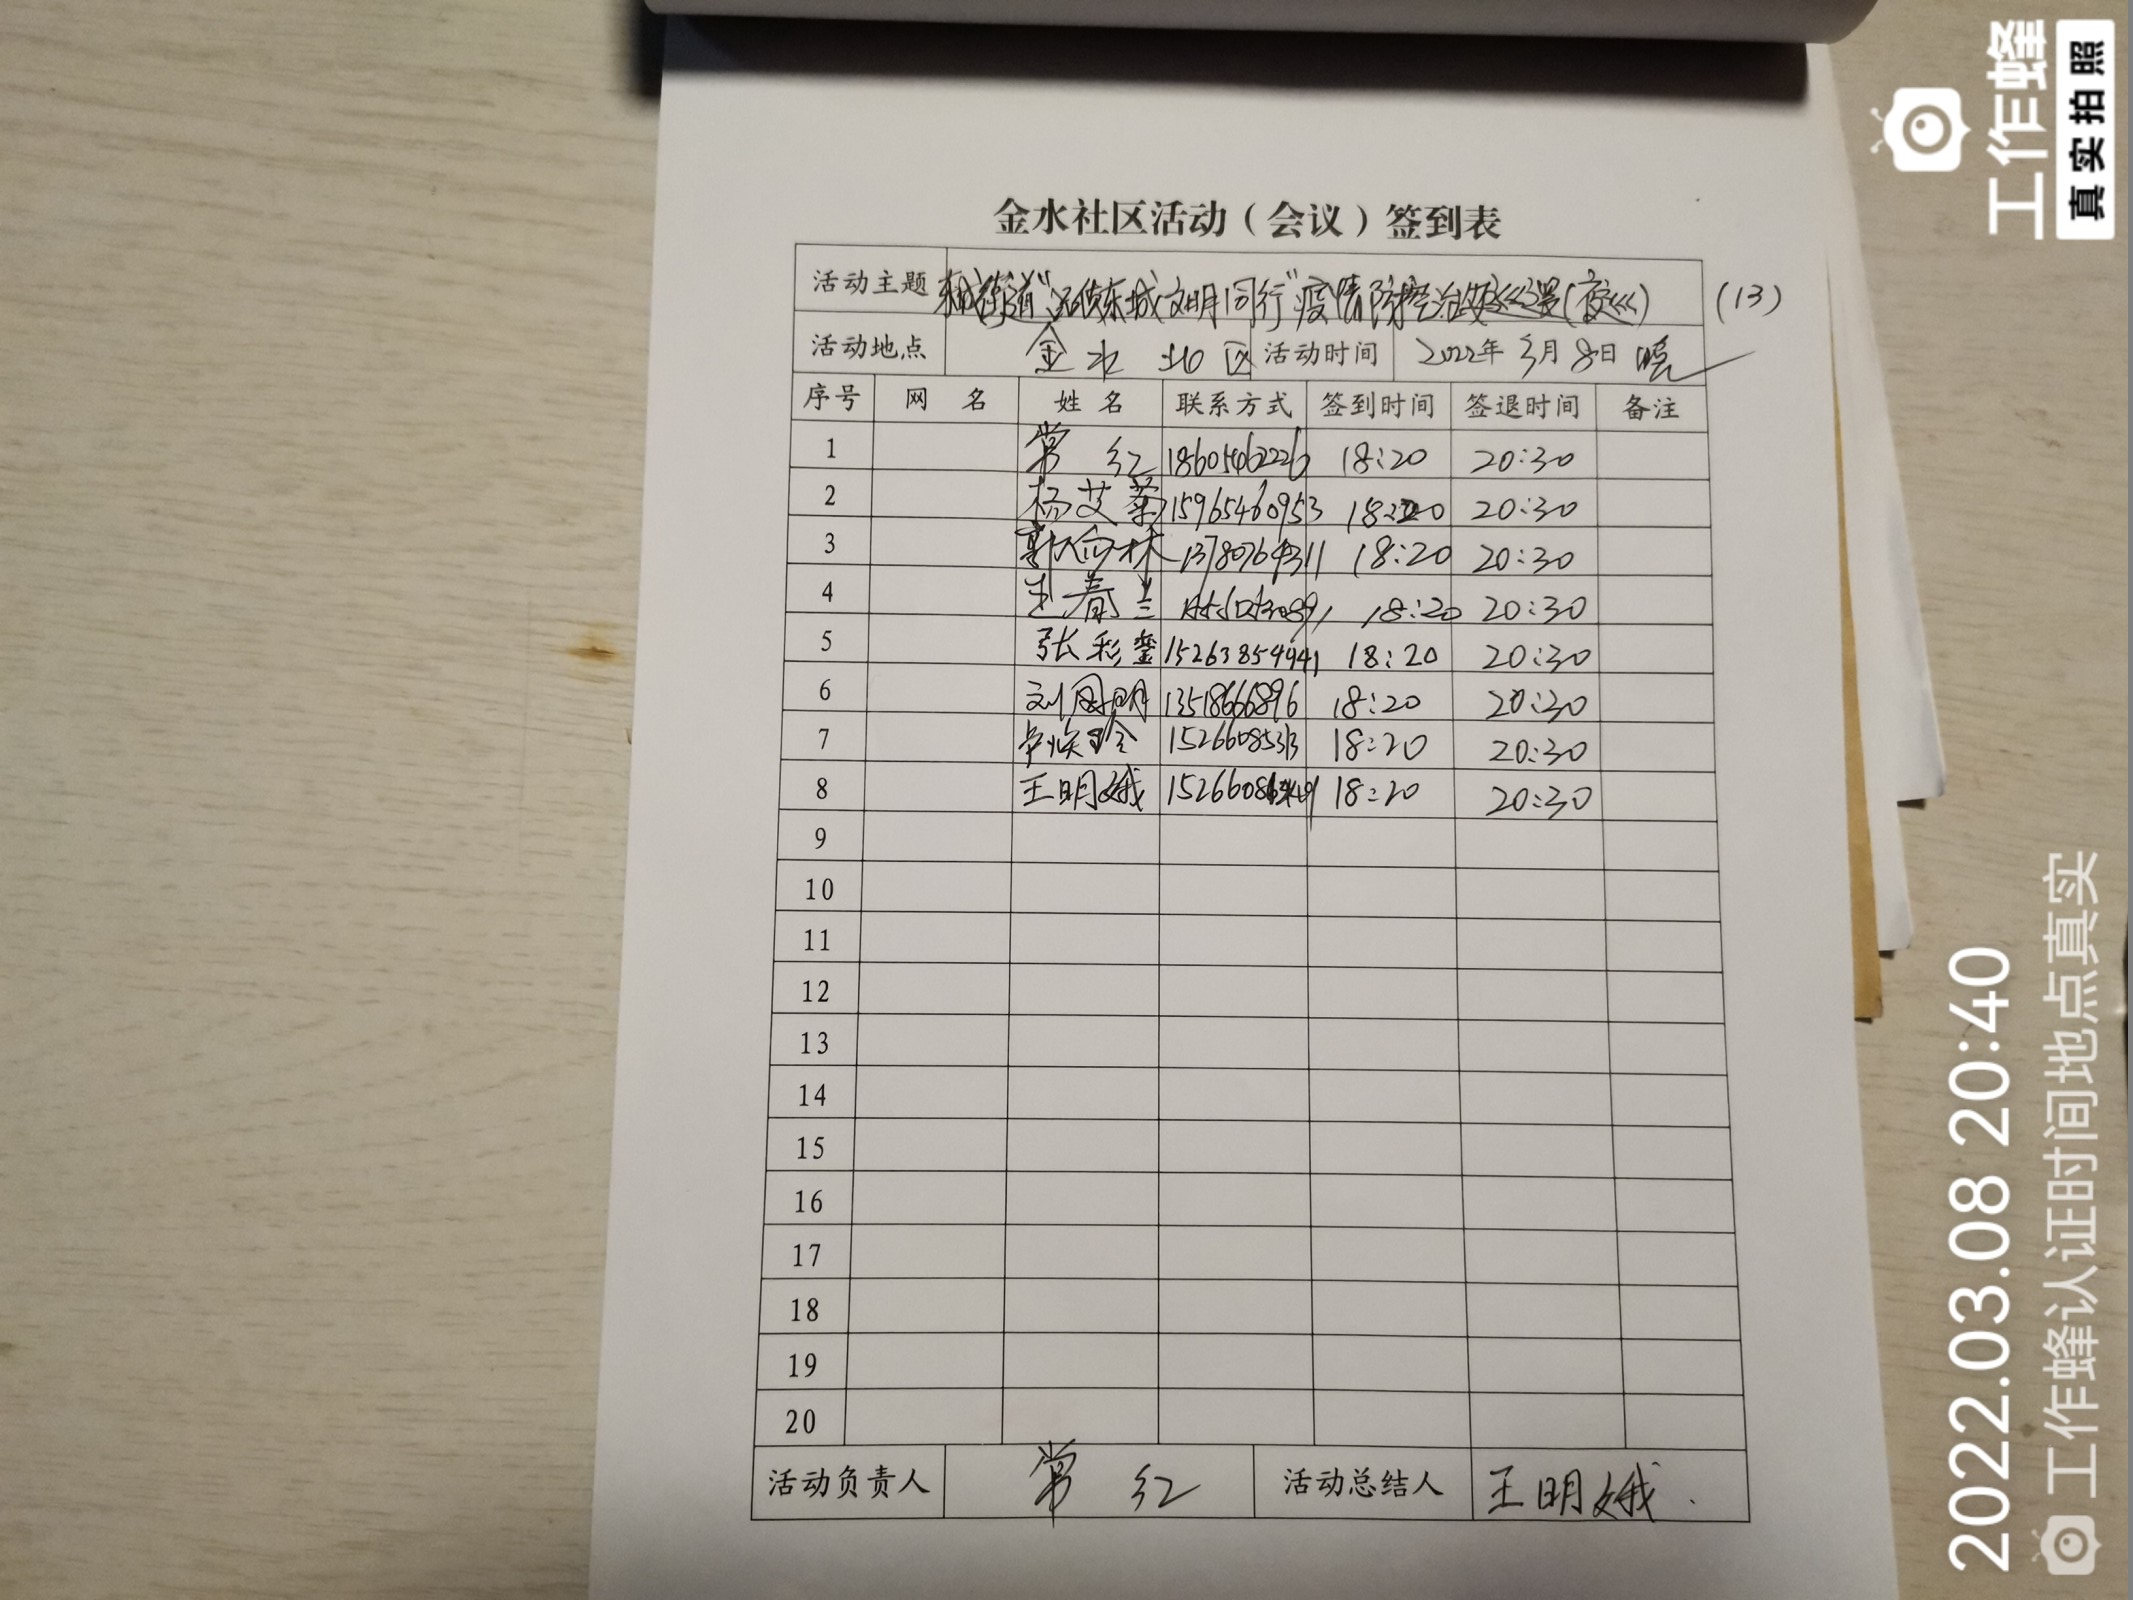 金水社区活动（会议）签到表
活动主题 街道"文明同行"疫情防控治安巡逻(夜巡) (13)
活动地点 金水北区 活动时间 2022年3月8日 晚
序号 网 名 姓 名 联系方式 签到时间 签退时间 备注
1 常 红 18605462226 18:20 20:30
2 杨艾菊 15965460953 18:20 20:30
3 郭向林 13780764311 18:20 20:30
4 春兰 18:20 20:30
5 张彩銮 15263854941 18:20 20:30
6 刘国明 13518666896 18:20 20:30
7 玲 15266085313 18:20 20:30
8 王明娥 18:20 20:30
9
10
11
12
13
14
15
16
17
18
19
20
活动负责人 常 红 活动总结人 王明娥
工作蜂
真实拍照
2022.03.08 20:40
工作蜂认证时间地点真实